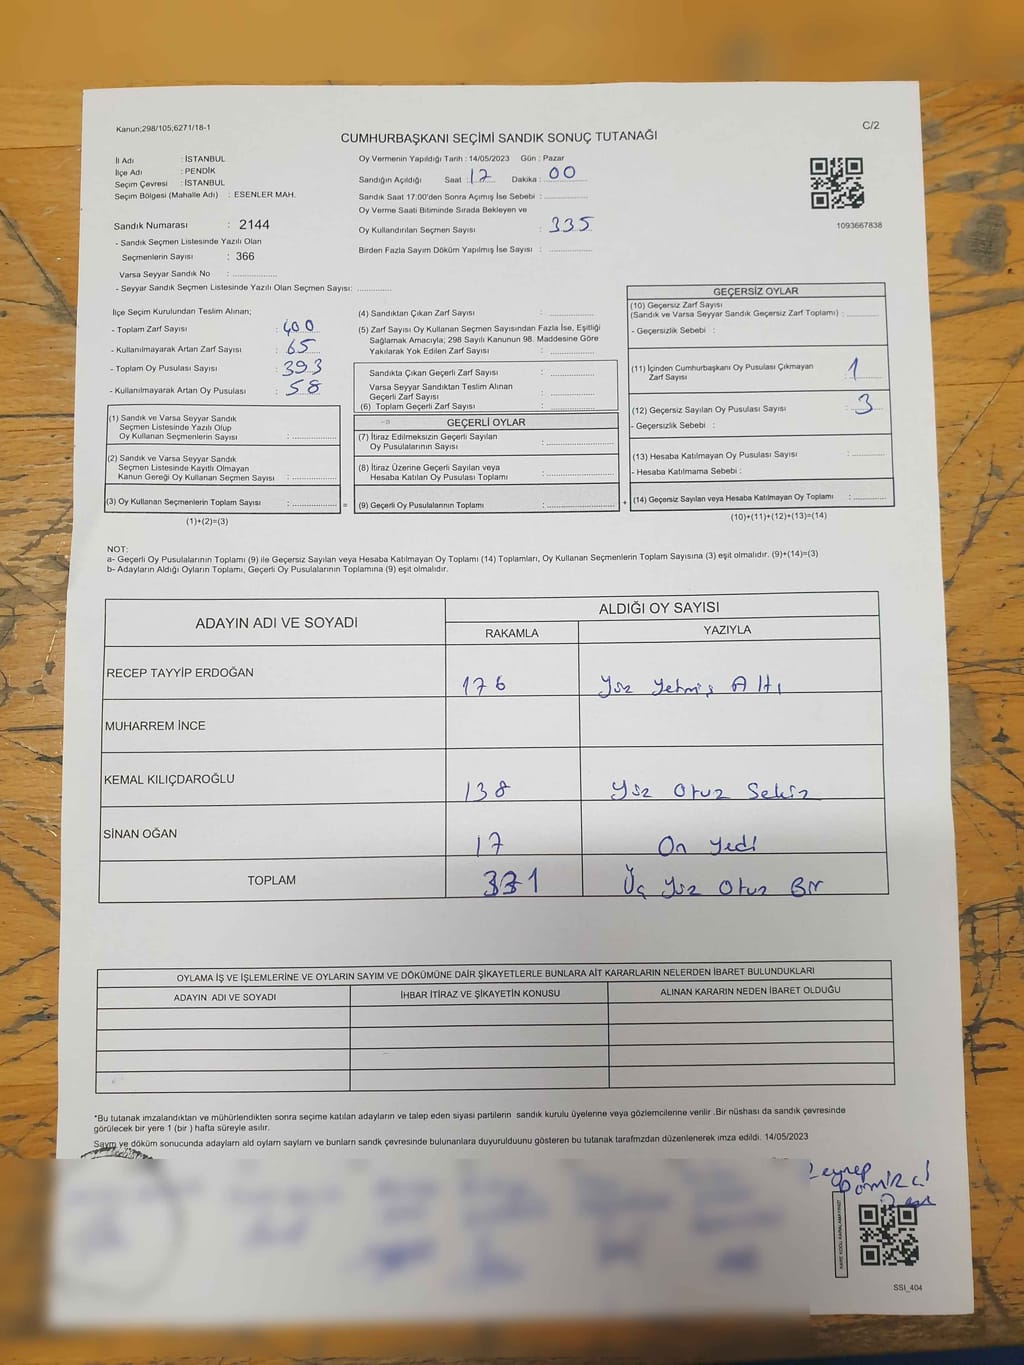 Kanun;298/105;6271/18-1
C/2
CUMHURBAŞKANI SEÇİMİ SANDIK SONUÇ TUTANAĞI
İl Adı : İSTANBUL
İlçe Adı : PENDİK
Seçim Çevresi : İSTANBUL
Seçim Bölgesi (Mahalle Adı) : ESENLER MAH.
Sandık Numarası : 2144
- Sandık Seçmen Listesinde Yazılı Olan
Seçmenlerin Sayısı : 366
Varsa Seyyar Sandık No : ..................
- Seyyar Sandık Seçmen Listesinde Yazılı Olan Seçmen Sayısı: ..............
Oy Vermenin Yapıldığı Tarih : 14/05/2023 Gün : Pazar
Sandığın Açıldığı Saat : 17 Dakika : 00
Sandık Saat 17:00'den Sonra Açımış İse Sebebi : ..................
Oy Verme Saati Bitiminde Sırada Bekleyen ve
Oy Kullandırılan Seçmen Sayısı : 335
Birden Fazla Sayım Döküm Yapılmış İse Sayısı : ..................
1093667838
İlçe Seçim Kurulundan Teslim Alınan;
- Toplam Zarf Sayısı : 400
- Kullanılmayarak Artan Zarf Sayısı : 65
- Toplam Oy Pusulası Sayısı : 393
- Kullanılmayarak Artan Oy Pusulası : 58
(1) Sandık ve Varsa Seyyar Sandık
Seçmen Listesinde Yazılı Olup
Oy Kullanan Seçmenlerin Sayısı : ..................
(2) Sandık ve Varsa Seyyar Sandık
Seçmen Listesinde Kayıtlı Olmayan
Kanun Gereği Oy Kullanan Seçmen Sayısı : ..................
(3) Oy Kullanan Seçmenlerin Toplam Sayısı : ..................
=
(1)+(2)=(3)
(4) Sandıktan Çıkan Zarf Sayısı : ..................
(5) Zarf Sayısı Oy Kullanan Seçmen Sayısından Fazla İse, Eşitliği
Sağlamak Amacıyla; 298 Sayılı Kanunun 98. Maddesine Göre
Yakılarak Yok Edilen Zarf Sayısı : ..................
Sandıkta Çıkan Geçerli Zarf Sayısı : ..................
Varsa Seyyar Sandıktan Teslim Alınan
Geçerli Zarf Sayısı : ..................
(6) Toplam Geçerli Zarf Sayısı : ..................
GEÇERLİ OYLAR
(7) İtiraz Edilmeksizin Geçerli Sayılan
Oy Pusulalarının Sayısı : ..................
(8) İtiraz Üzerine Geçerli Sayılan veya
Hesaba Katılan Oy Pusulaları Toplamı : ..................
(9) Geçerli Oy Pusulalarının Toplamı : ..................
+
GEÇERSİZ OYLAR
(10) Geçersiz Zarf Sayısı
(Sandık ve Varsa Seyyar Sandık Geçersiz Zarf Toplamı) : ..............
- Geçersizlik Sebebi :
(11) İçinden Cumhurbaşkanı Oy Pusulası Çıkmayan
Zarf Sayısı : 1
(12) Geçersiz Sayılan Oy Pusulası Sayısı : 3
- Geçersizlik Sebebi :
(13) Hesaba Katılmayan Oy Pusulası Sayısı : ..............
- Hesaba Katılmama Sebebi :
(14) Geçersiz Sayılan veya Hesaba Katılmayan Oy Toplamı : ..............
(10)+(11)+(12)+(13)=(14)
NOT:
a- Geçerli Oy Pusulalarının Toplamı (9) ile Geçersiz Sayılan veya Hesaba Katılmayan Oy Toplamı (14) Toplamları, Oy Kullanan Seçmenlerin Toplam Sayısına (3) eşit olmalıdır. (9)+(14)=(3)
b- Adayların Aldığı Oyların Toplamı, Geçerli Oy Pusulalarının Toplamına (9) eşit olmalıdır.
ADAYIN ADI VE SOYADI ALDIĞI OY SAYISI
RAKAMLA YAZIYLA
RECEP TAYYİP ERDOĞAN 176 Yüz Yetmiş Altı
MUHARREM İNCE
KEMAL KILIÇDAROĞLU 138 Yüz Otuz Sekiz
SİNAN OĞAN 17 On Yedi
TOPLAM 331 Üç Yüz Otuz Bir
OYLAMA İŞ VE İŞLEMLERİNE VE OYLARIN SAYIM VE DÖKÜMÜNE DAİR ŞİKAYETLERLE BUNLARA AİT KARARLARIN NELERDEN İBARET BULUNDUKLARI
ADAYIN ADI VE SOYADI İHBAR İTİRAZ VE ŞİKAYETİN KONUSU ALINAN KARARIN NEDEN İBARET OLDUĞU
*Bu tutanak imzalandıktan ve mühürlendikten sonra seçime katılan adayların ve talep eden siyasi partilerin sandık kurulu üyelerine veya gözlemcilerine verilir .Bir nüshası da sandık çevresinde
görülecek bir yere 1 (bir ) hafta süreyle asılır.
Sayım ve döküm sonucunda adayların ald oyların sayların ve bunların sandk çevresinde bulunanlara duyurulduunu gösteren bu tutanak tarafmzdan düzenlenerek imza edildi. 14/05/2023
Zeynep
SSI_404